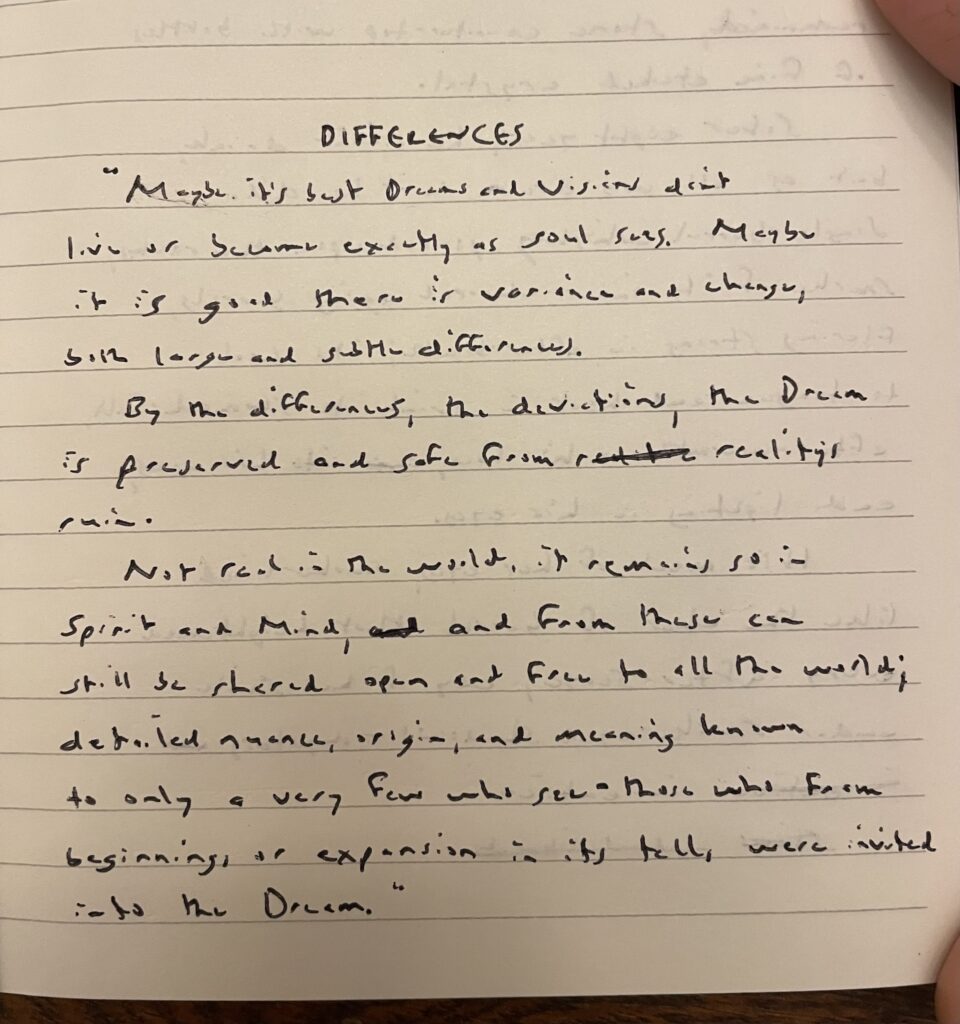 DIFFERENCES
"Maybe it's best Dreams and Visions don't
live or become exactly as soul sees. Maybe
it is good there is variance and change,
both large and subtle differences.
By the differences, the deviations, the Dream
is preserved and safe from reality's
ruin.
Not real in the world, it remains so in
Spirit and Mind, and and from these can
still be shared open and free to all the world;
detailed nuance, origin, and meaning known
to only a very few who see - those who from
beginning, or expansion in its tell, were invited
into the Dream."